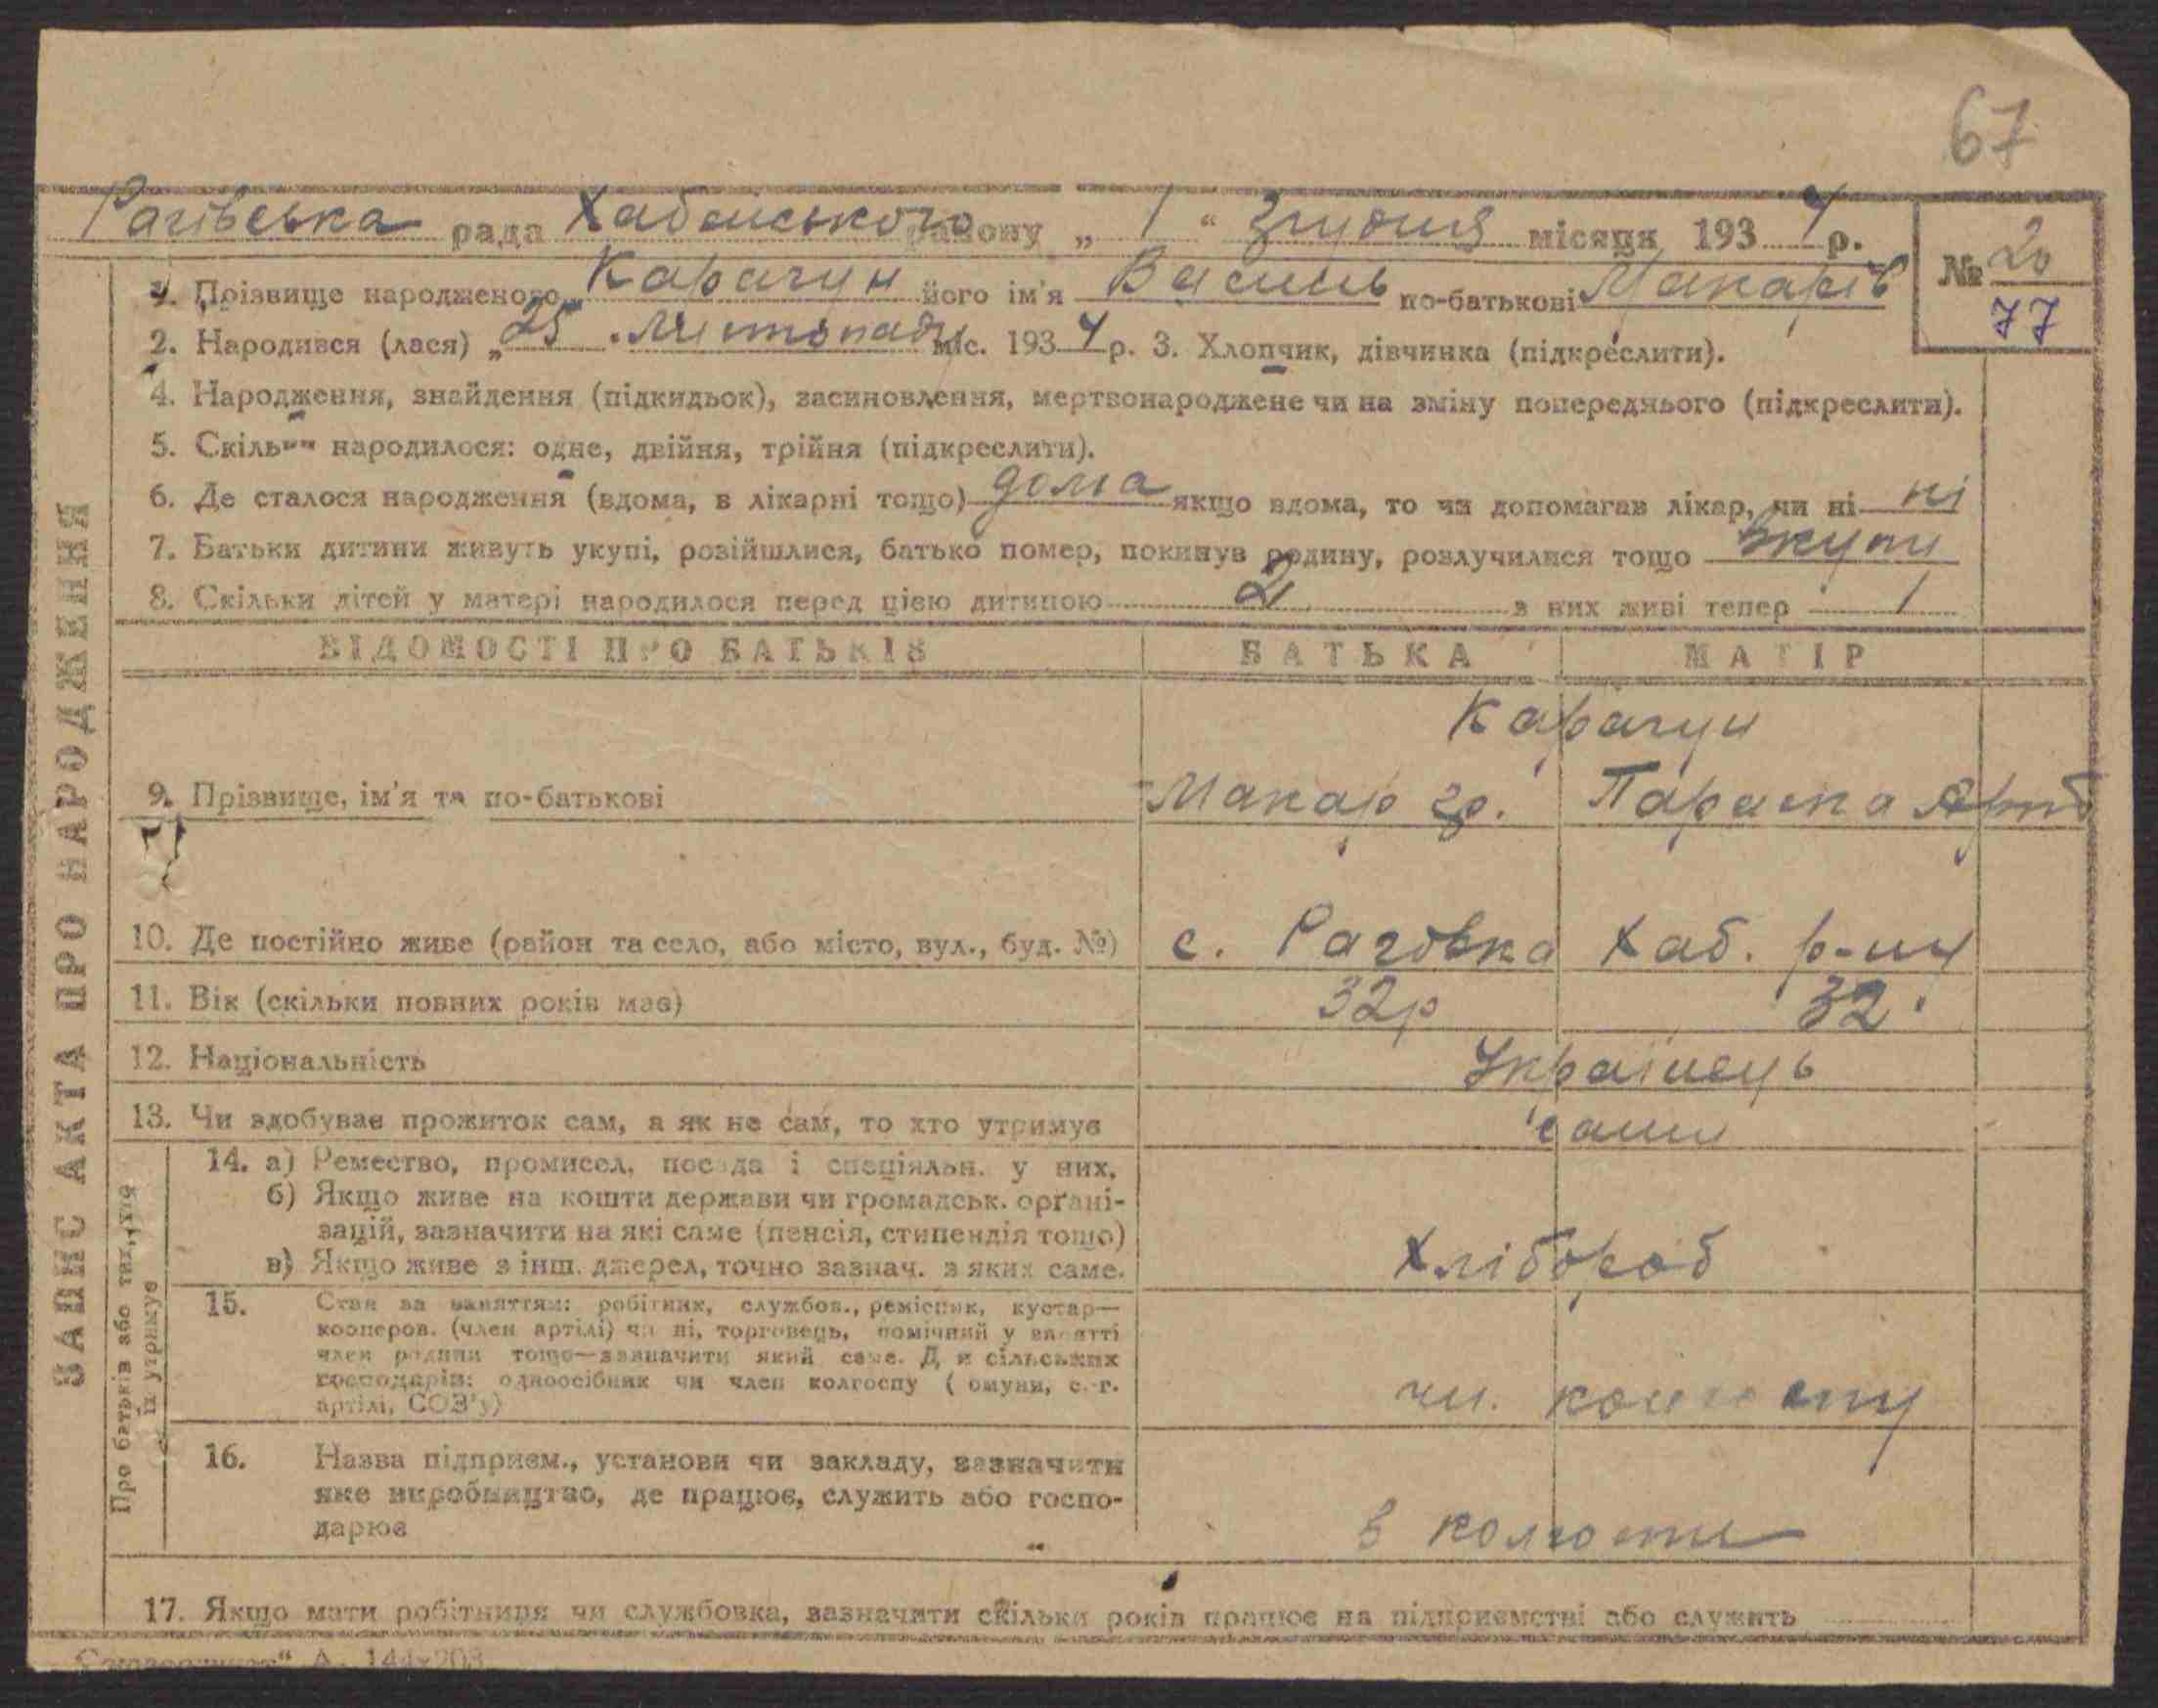 67
Рагівська рада Хабенського району „ 1 “ Згрудня місяця 1934 р.
№ 20
77
1. Прізвище народженого Карачун його ім'я Василь по-батькові Макарів
2. Народився (лася) „ 25 . Листопаду міс. 1934 р. 3. Хлопчик, дівчинка (підкреслити).
4. Народження, знайдення (підкидьок), засиновлення, мертвонароджене чи на зміну попереднього (підкреслити).
5. Скільки народилося: одне, двійня, трійня (підкреслити).
6. Де сталося народження (вдома, в лікарні тощо) дома якщо вдома, то чи допомагав лікар, чи ні ні
7. Батьки дитини живуть укупі, розійшлися, батько помер, покинув родину, розлучилися тощо вкупи
8. Скільки дітей у матері народилося перед цією дитиною 2 з них живі тепер 1
ВІДОМОСТІ ПРО БАТЬКІВ БАТЬКА МАТІР
Карачун
9. Прізвище, ім'я та по-батькові Макар гр. Параска
10. Де постійно живе (район та село, або місто, вул., буд. №) с. Раговка Хаб. р-ну
11. Вік (скільки повних років має) 32р 32
12. Національність Українець
13. Чи здобуває прожиток сам, а як не сам, то хто утримує сами
14. а) Ремество, промисел, посада і спеціяльн. у них.
б) Якщо живе на кошти держави чи громадськ. органі-
зацій, зазначити на які саме (пенсія, стипендія тощо)
в) Якщо живе з інш. джерел, точно зазнач. з яких саме. Хлібороб
15. Стан за заняттям: робітник, службов., ремісник, кустар—
кооперов. (член артілі) чи ні, торговець, помічний у занятті
член родини тощо—зазначити який саме. Для сільських
господарів: одноосібник чи член колгоспу ( омуни, с.-г.
артілі, СОЗ'у) чл. колгоспу
16. Назва підприєм., установи чи закладу, зазначити
яке виробництво, де працює, служить або госпо-
дарює в колгоспи
17. Якщо мати робітниця чи службовка, зазначити скільки років працює на підприємстві або служить
ЗАПИС АКТА ПРО НАРОДЖЕННЯ
Про батьків або тих, хто
їх утримує
А. 144×203